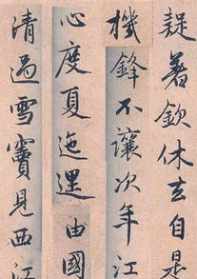 疑著欽休去自是
機鋒不讓次年江
心度夏迤邐由國
清過雪竇見西江